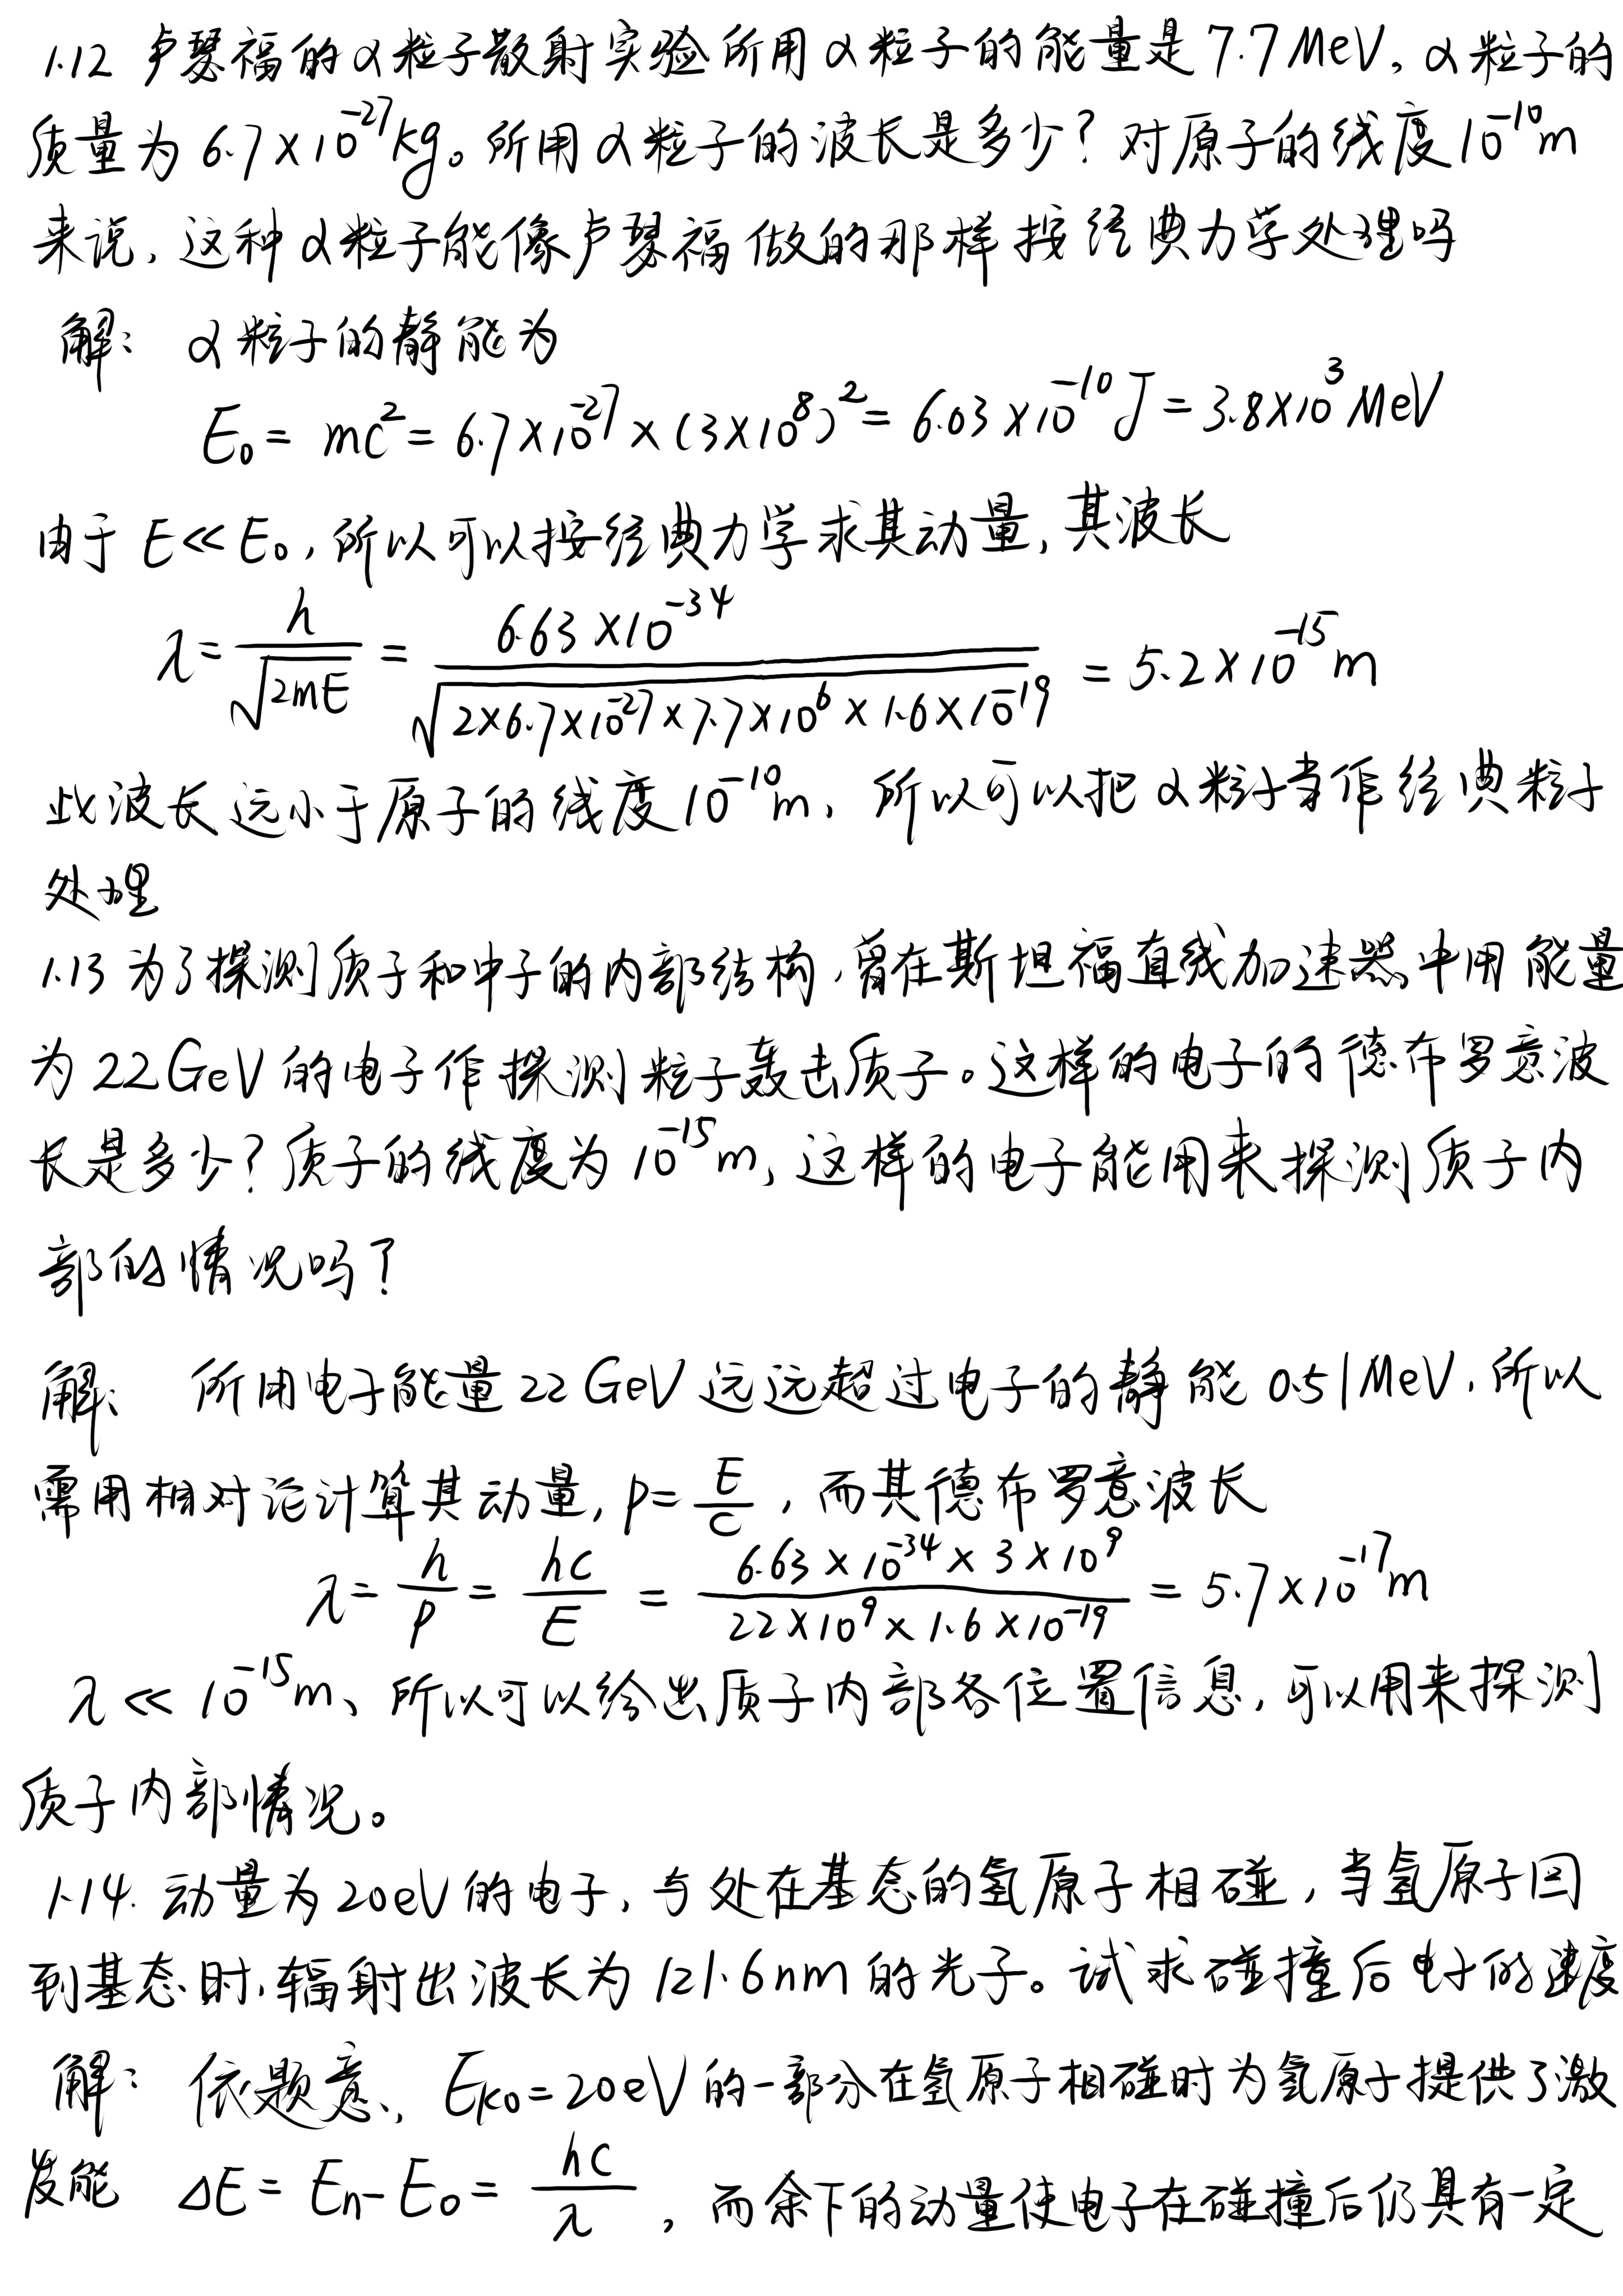 1.12 卢瑟福的α粒子散射实验所用α粒子的能量是7.7MeV,α粒子的
质量为6.7×10⁻²⁷kg。所用α粒子的波长是多少?对原子的线度10⁻¹⁰m
来说,这种α粒子能像卢瑟福做的那样按经典力学处理吗
解: α粒子的静能为
E₀= mc²=6.7×10⁻²⁷×(3×10⁸)²=6.03×10⁻¹⁰J=3.8×10³MeV
由于E≪E₀,所以可以按经典力学求其动量,其波长
λ=h/√(2mE) = 6.63×10⁻³⁴/√(2×6.7×10⁻²⁷×7.7×10⁶×1.6×10⁻¹⁹) =5.2×10⁻¹⁵m
此波长远小于原子的线度10⁻¹⁰m,所以可以把α粒子当作经典粒子
处理
1.13 为了探测质子和中子的内部结构,曾在斯坦福直线加速器中用能量
为22GeV的电子作探测粒子轰击质子。这样的电子的德布罗意波
长是多少?质子的线度为10⁻¹⁵m,这样的电子能用来探测质子内
部的情况吗?
解: 所用电子能量22GeV远远超过电子的静能0.51MeV,所以
需用相对论计算其动量,p=E/c,而其德布罗意波长
λ=h/p=hc/E=6.63×10⁻³⁴×3×10⁹/22×10⁹×1.6×10⁻¹⁹=5.7×10⁻¹⁷m
λ≪10⁻¹⁵m、所以可以给出质子内部各位置信息,可以用来探测
质子内部情况。
1.14. 动量为20eV的电子,与处在基态的氢原子相碰,当氢原子回
到基态时,辐射出波长为121.6nm的光子。试求碰撞后电子的速度
解: 依题意, Eₖ₀=20eV的一部分在氢原子相碰时为氢原子提供了激
发能 ΔE=Eₙ-E₀=hc/λ,而余下的动量使电子在碰撞后仍具有一定